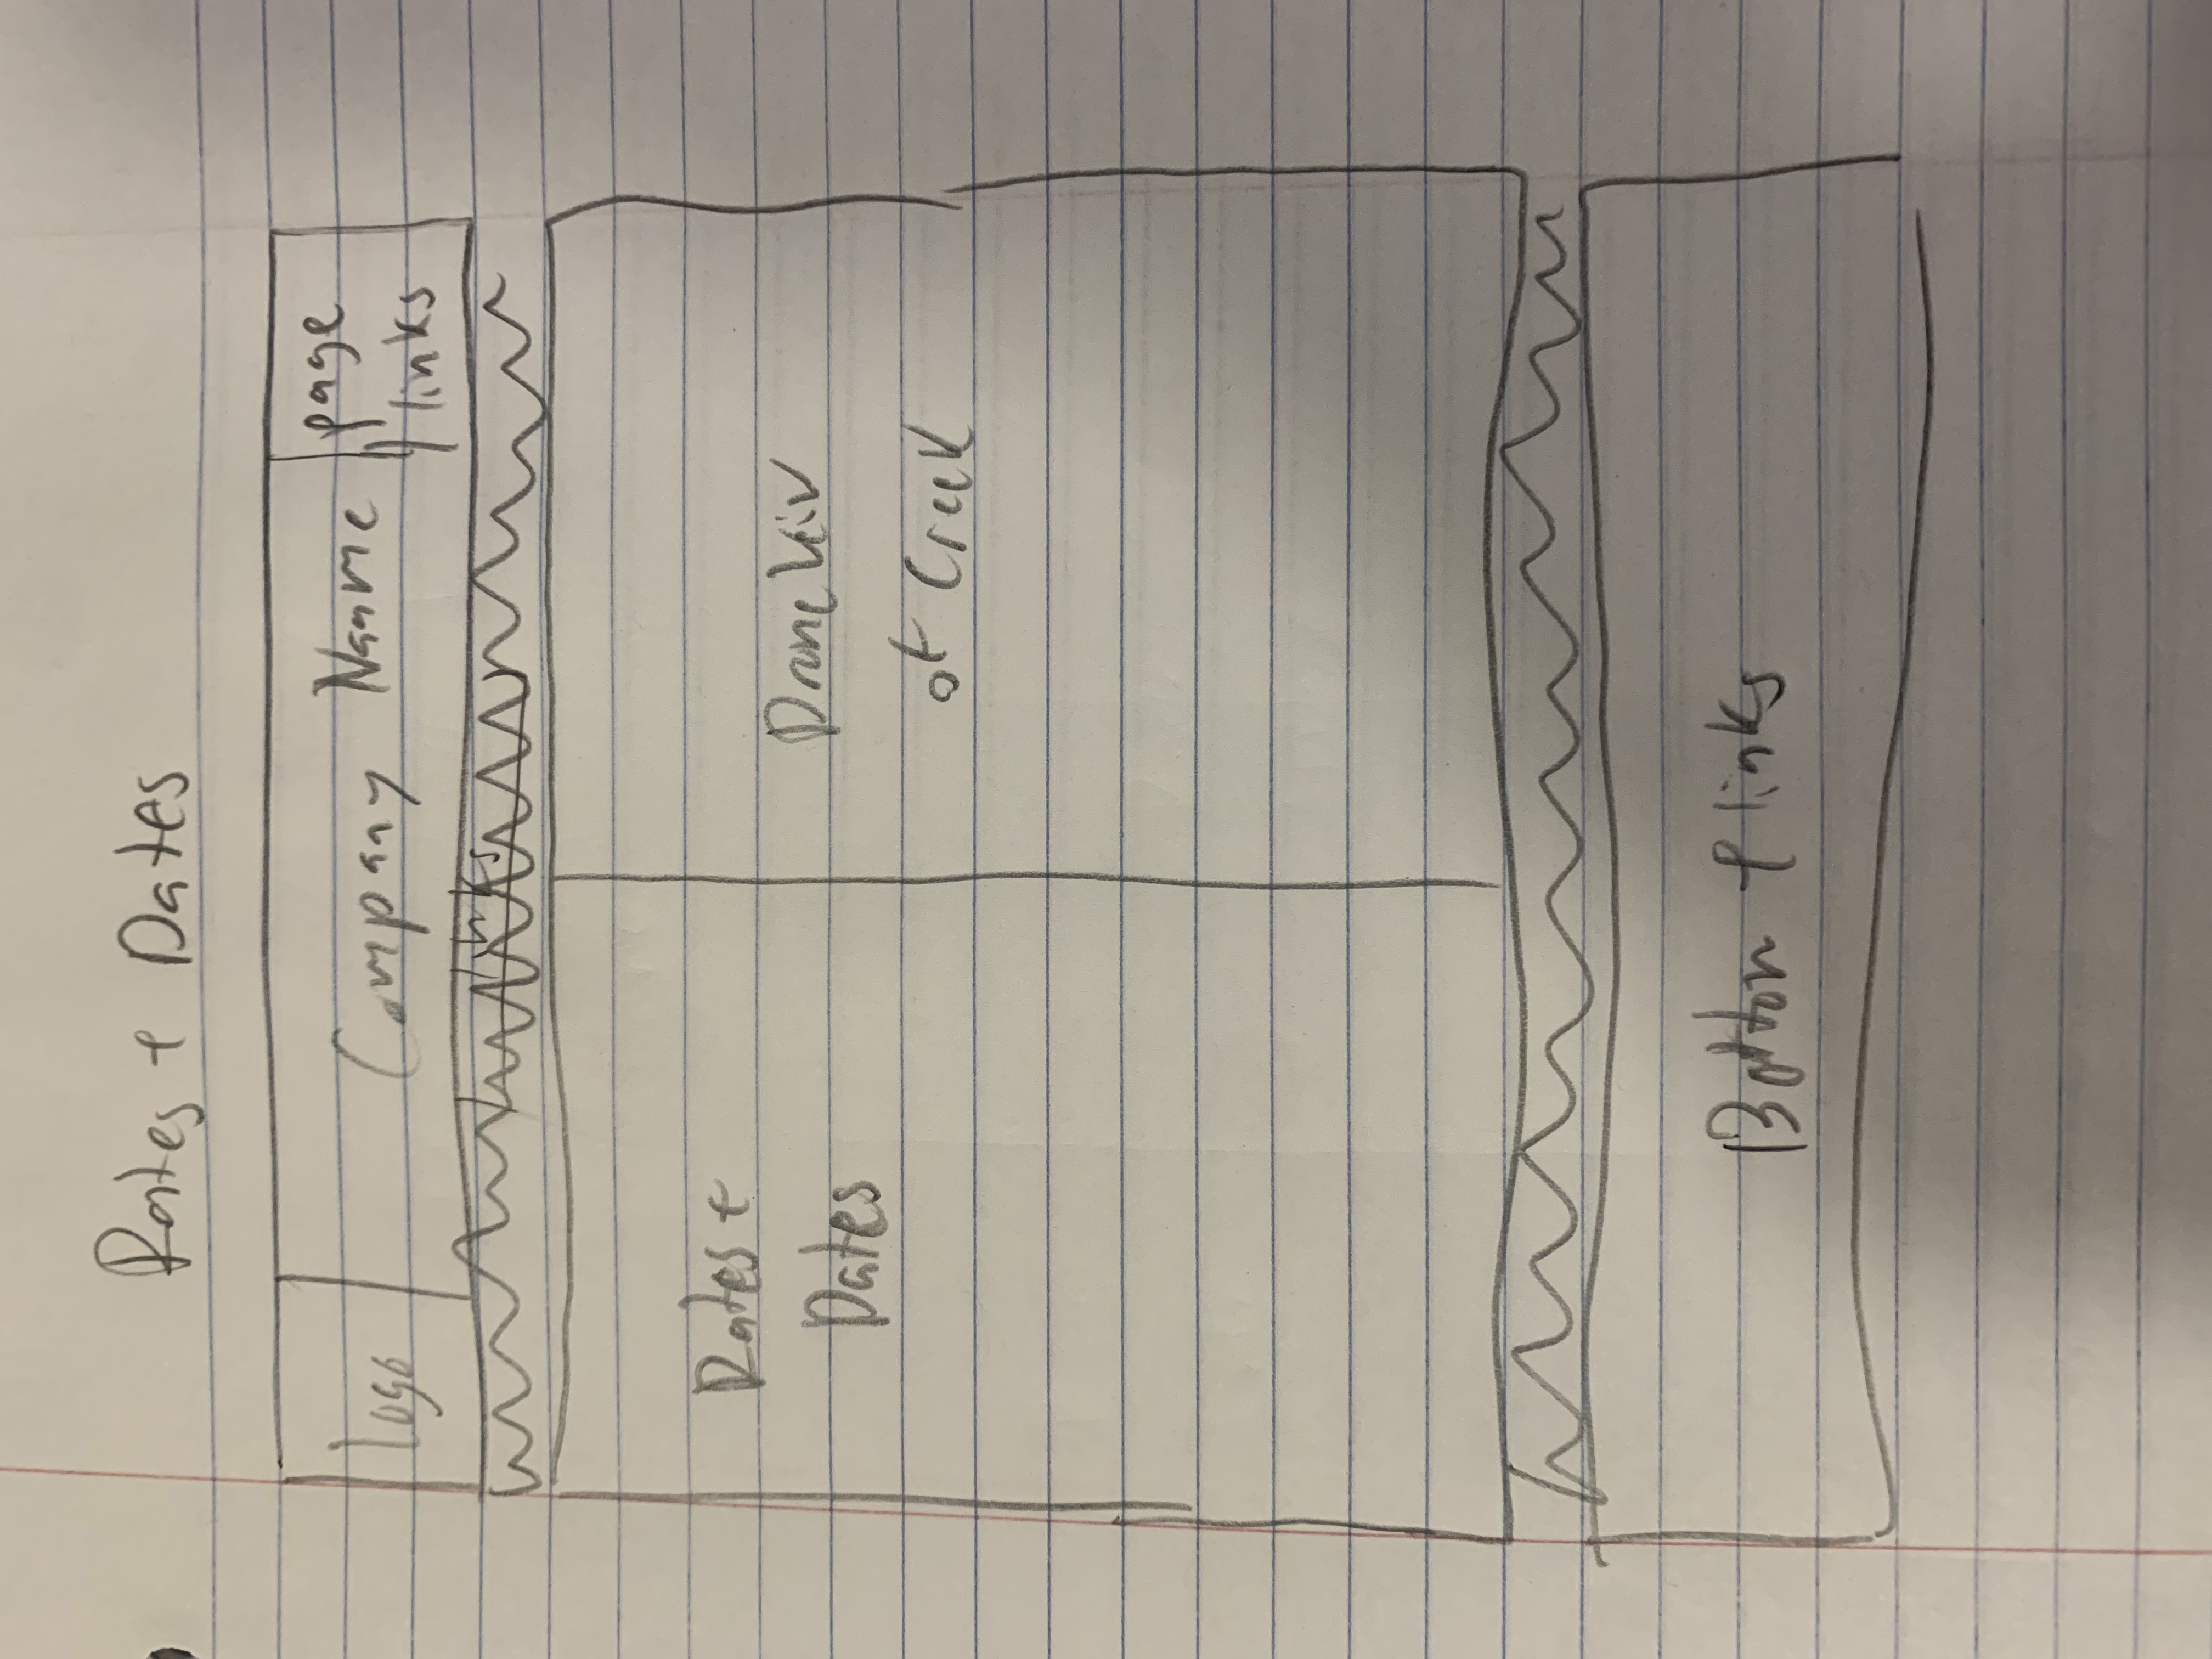 Rates + Dates
logo
Company Name
page
links
links
Rates +
Dates
Drone Veiv
of Creek
Bottom + links